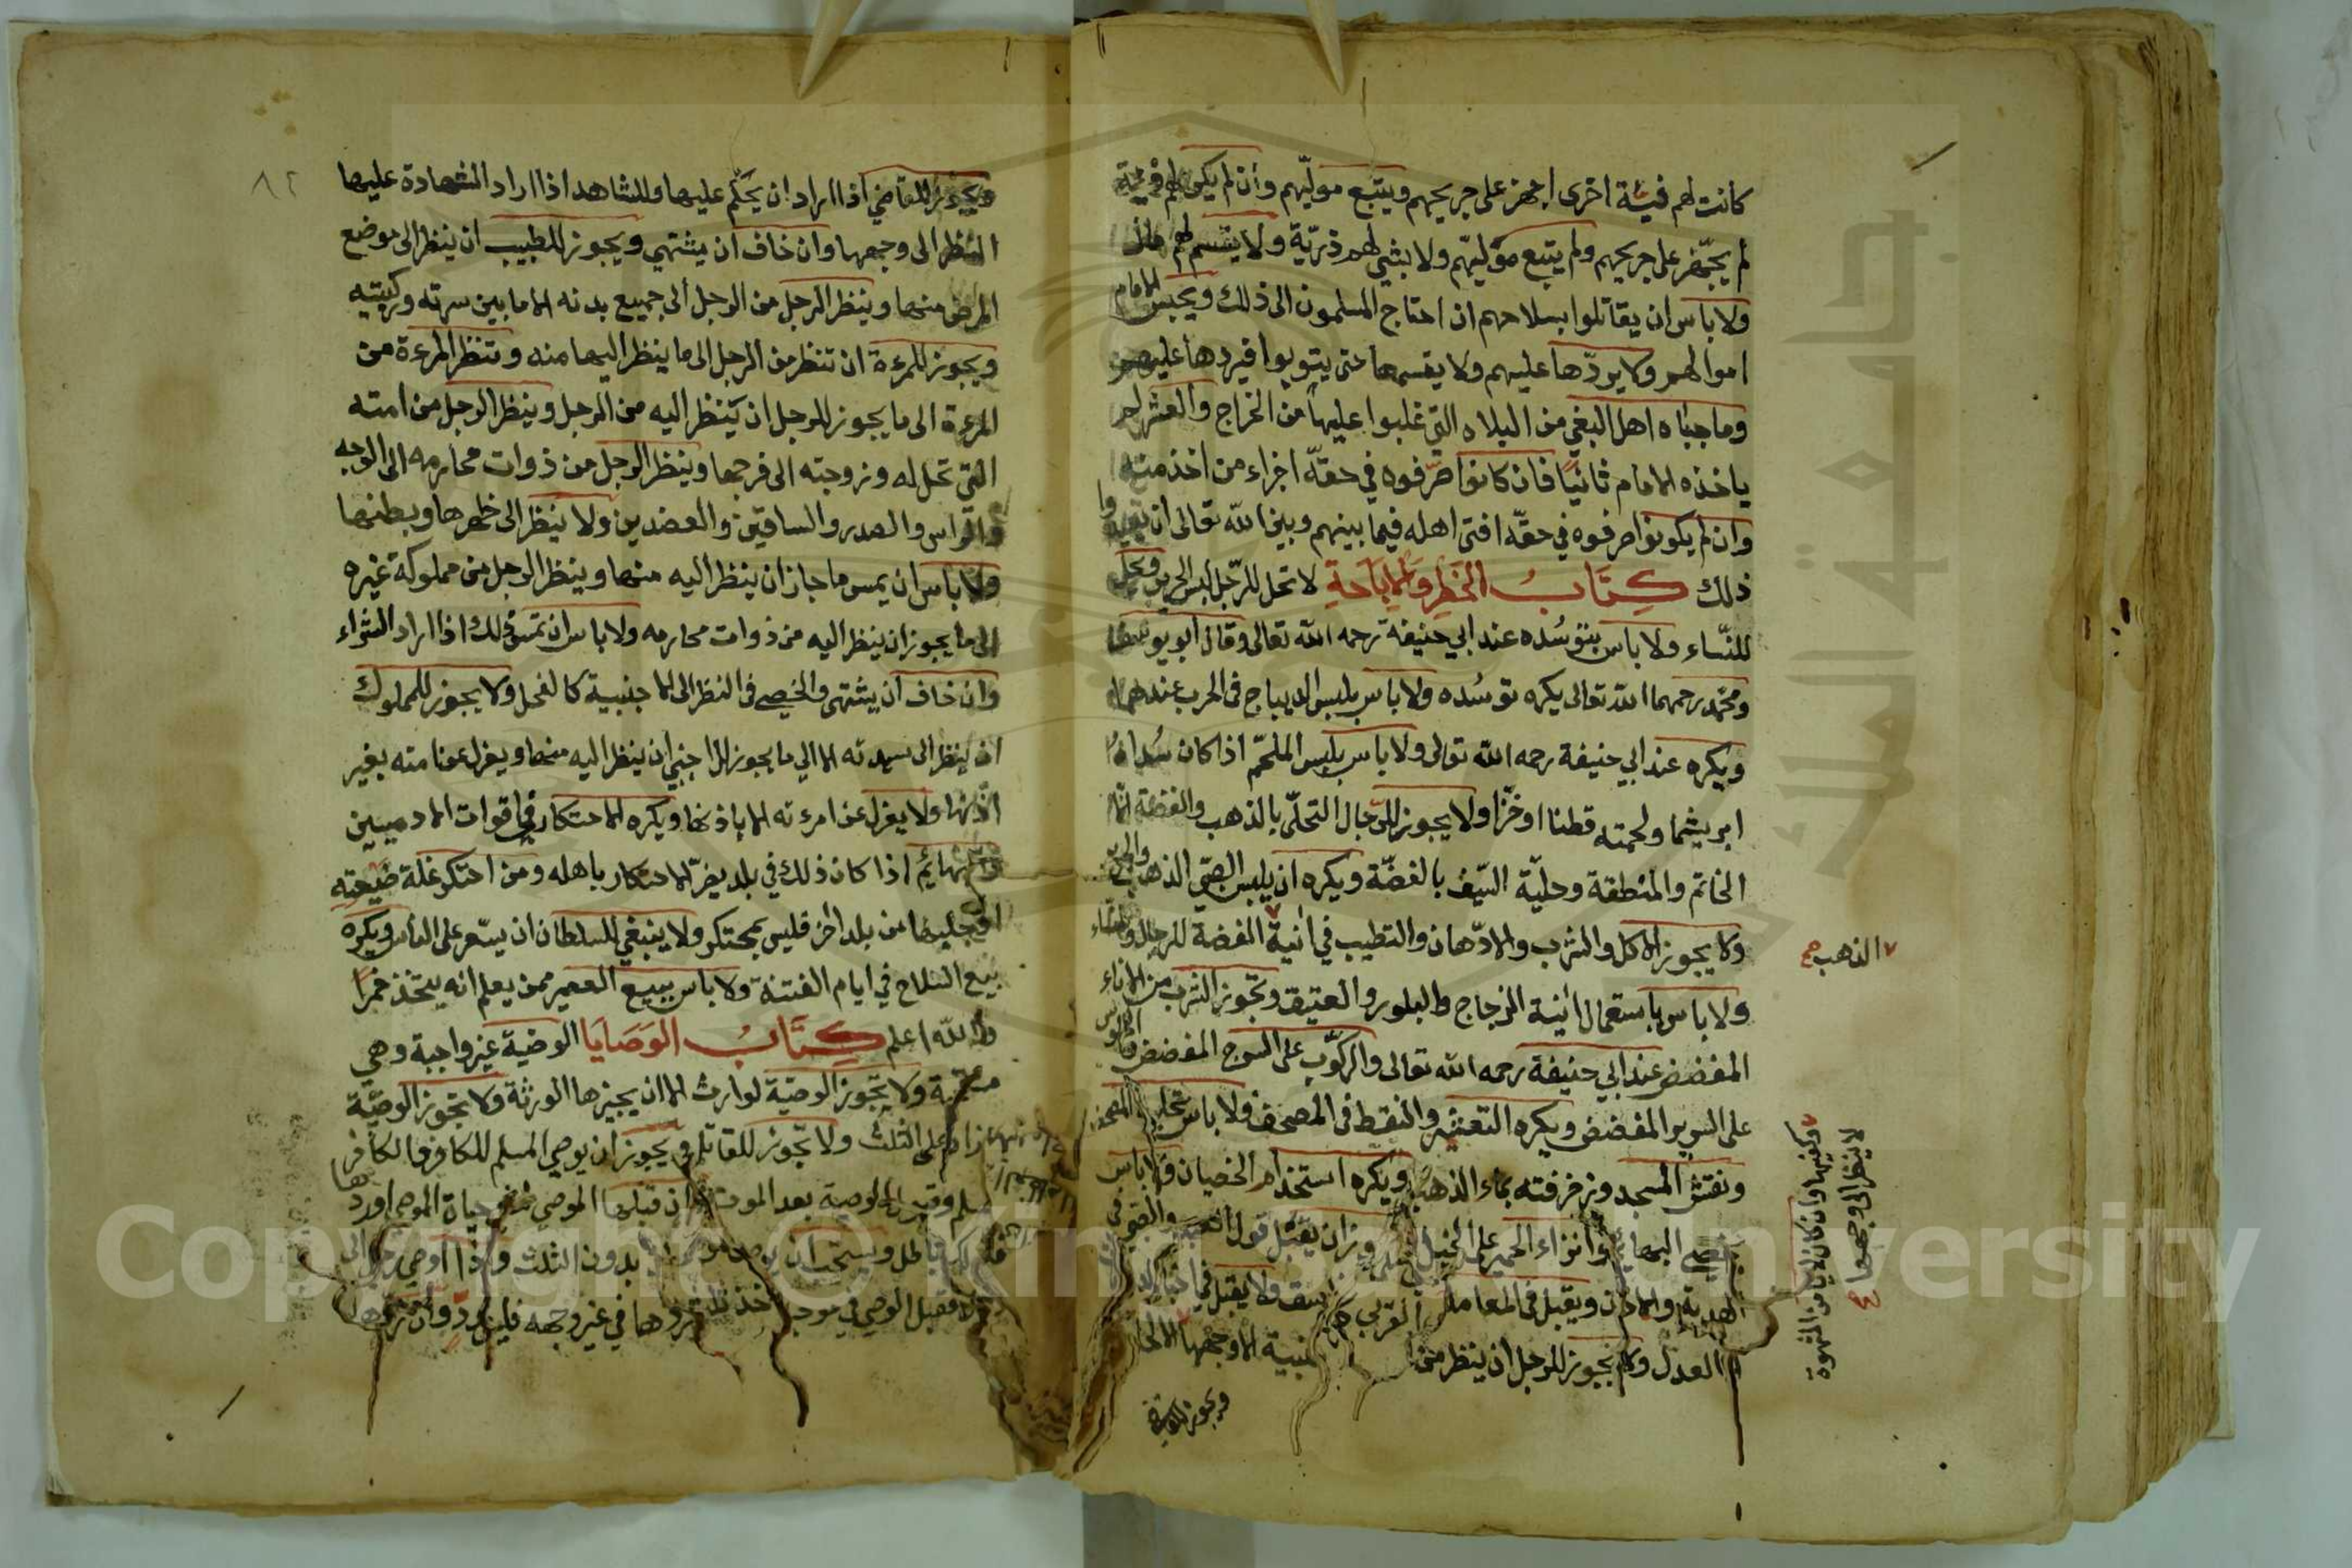 كانت لهم فيئة اخرى اجهز على جريحهم ويتبع موليهم وان لم يكن لهم فيئة
لم يجهز على جريحهم ولم يتبع موليهم ولا يسبى لهم ذرية ولا يقسم لهم مال
ولا باس ان يقاتلوا بسلاحهم ان احتاج المسلمون الى ذلك ويحبس الامام
اموالهم ولا يردها عليهم ولا يقسمها حتى يتوبوا فيردها عليهم
وما جباه اهل البغي من البلاد التي غلبوا عليها من الخراج والعشر لم
ياخذه الامام ثانيا فان كانوا صرفوه في حقه اجزاء من اخذ منه
وان لم يكونوا صرفوه في حقه افتى اهله فيما بينهم وبين الله تعالى ان يعيدوا
ذلك كتاب الحظر والاباحة لا تحل للرجل لبس الحرير ويحل
للنساء ولا باس بتوسده عند ابي حنيفة رحمه الله تعالى وقال ابو يوسف
ومحمد رحمهما الله تعالى يكره توسده ولا باس بلبس الديباج في الحرب عندهما
ويكره عند ابي حنيفة رحمه الله تعالى ولا باس بلبس الملحم اذا كان سداه
ابريشما ولحمته قطنا او خزا ولا يجوز للرجال التحلي بالذهب والفضة الا
الخاتم والمنطقة وحلية السيف بالفضة ويكره ان يلبس الصبي الذهب والحرير
ولا يجوز الاكل والشرب والادهان والتطيب في انية الفضة للرجال والنساء
الذهب صح
ولا باس باستعمال انية الزجاج والبلور والعتيق وتجوز الشرب من الاناء
المفضض عند ابي حنيفة رحمه الله تعالى والركوب على السرج المفضض والجلوس
على السرير المفضض ويكره التعشير والنقط في المصحف ولا باس بتحلية المصحف
ونقش المسجد وزخرفته بماء الذهب ويكره استخدام الخصيان ولا باس
بخصي البهائم وانزاء الحمير على الخيل ويجوز ان يقبل قول العبد والصبي في
الهدية والاذن ويقبل في المعاملات الفاسق ولا يقبل في اخبار
العدل ولا يجوز للرجل ان ينظر من الاجنبية الا وجهها الا الى
وكفيها وان كان لا يامن الشهوة
لا ينظر الى وجهها
ويجوز للقاضي
ويجوز للقاضي اذا اراد ان يحكم عليها وللشاهد اذا اراد الشهادة عليها
النظر الى وجهها وان خاف ان يشتهي ويجوز للطبيب ان ينظر الى موضع
المرض منها وينظر الرجل من الرجل الى جميع بدنه الا ما بين سرته وركبتيه
ويجوز للمرءة ان تنظر من الرجل الى ما ينظر اليها منه وتنظر المرءة من
المرءة الى ما يجوز للرجل ان ينظر اليه من الرجل وينظر الرجل من امته
التي تحل له وزوجته الى فرجها وينظر الرجل من ذوات محارمه الى الوجه
والراس والصدر والساقين والعضدين ولا ينظر الى ظهرها وبطنها
ولا باس ان يمس ما جاز ان ينظر اليه منها وينظر الرجل من مملوكة غيره
الى ما يجوز ان ينظر اليه من ذوات محارمه ولا باس ان تمس ذلك اذا اراد الشراء
وان خاف ان يشتهى والخصي في النظر الى الاجنبية كالفحل ولا يجوز للمملوك
ان ينظر الى سيدته الا الى ما يجوز للاجنبي ان ينظر اليه منها ويعزل عن امته بغير
اذنها ولا يعزل عن امرءته الا باذنها ويكره الاحتكار في اقوات الادميين
والبهائم اذا كان ذلك في بلد يضر الاحتكار باهله ومن احتكر غلة ضيعته
او جلبها من بلد اخر فليس بمحتكر ولا ينبغي للسلطان ان يسعر على الناس ويكره
بيع السلاح في ايام الفتنة ولا باس ببيع العصير ممن يعلم انه يتخذ خمرا
والله اعلم كتاب الوصايا الوصية غير واجبة وهي
مستحبة ولا تجوز الوصية لوارث الا ان يجيزها الورثة ولا تجوز الوصية
بما زاد على الثلث ولا تجوز للقاتل ويجوز ان يوصي المسلم للكافر والكافر
للمسلم وقبول الوصية بعد الموت فان قبلها الموصى له في حياة الموصي او ردها
فذلك باطل ويستحب ان يوصي بدون الثلث واذا اوصى رجل الى
فقبل الوصي في وجه وردها في غير وجهه فليس برد وان ردها
٨٢